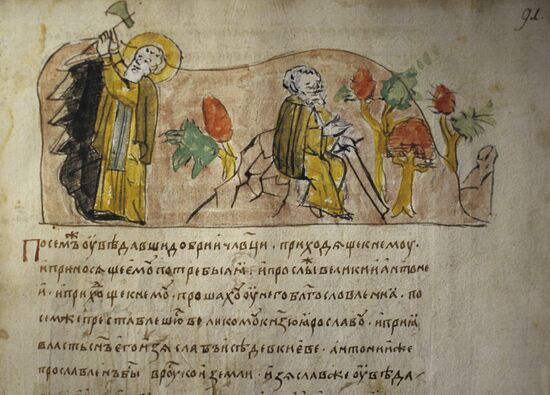 91.
По семъ оувѣдавши добрии чл҃вци. приходѧще к немоу.
и приносѧще емоу потребы. и прослы великии антоне
и. и прихо҃щ к немо. прошахоу оу него бл҃гословлениꙗ. по
семже преставлешюсѧ великому кнѧзю ꙗрославоу. и приꙗ
власть сн҃ъ его изѧславъ и сѣде в киеве. антонии же
прославленъ бы в роускои земли. изѧслав же оувѣда.